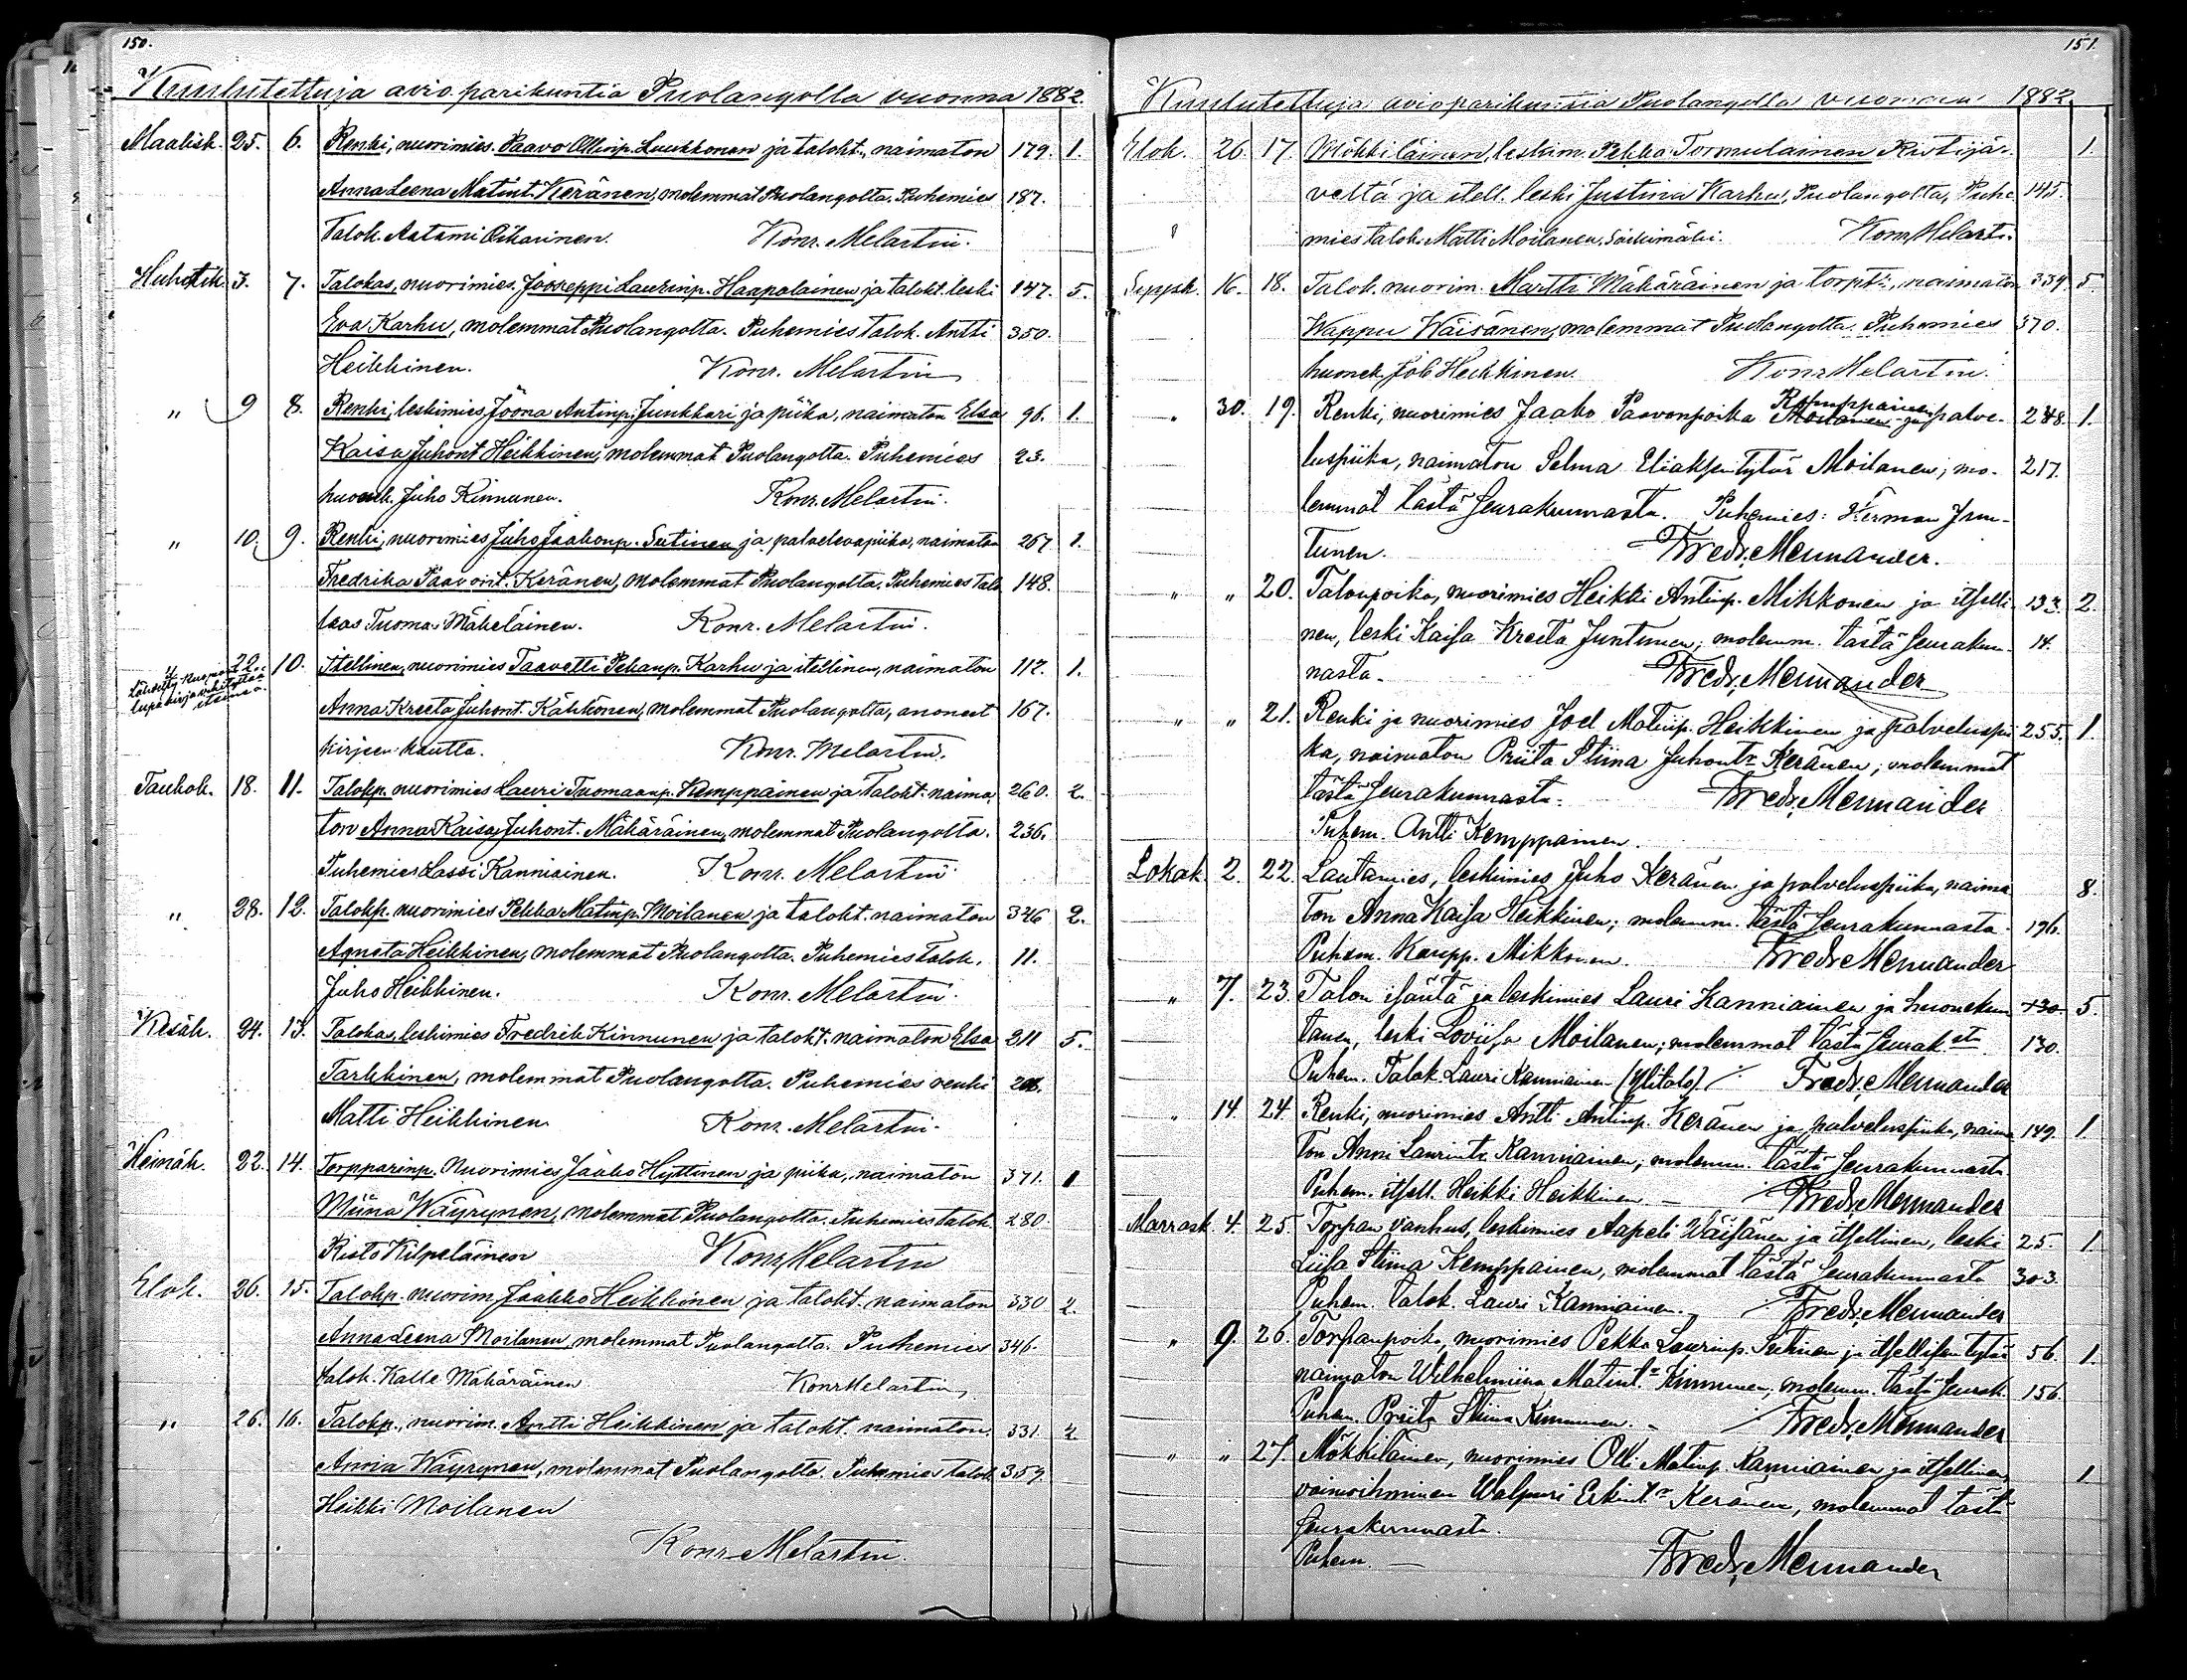 150.
Kuulutettuja avioparikuntia Puolangolla vuonna 1882.
Maalisk. 25. 6. Renki, nuorimies Paavo Ollinp. Luukkonen ja talokt., naimaton 179. 1.
Anna Leena Matint. Keränen, molemmat Puolangolta. Puhemies 187.
Talok. Aatami Oikarinen. Konr. Melartin.
Huhtik. 3. 7. Talokas, nuorimies Jooseppi Laurinp. Haapalainen ja talokt. leski 147. 5.
Eva Karhu, molemmat Puolangolta. Puhemies talok. Antti 350.
Heikkinen. Konr. Melartin
" 9 8. Renki, leskimies Joona Antinp. Junkkari ja piika, naimaton Elsa 96. 1.
Kaisa Juhont Heikkinen, molemmat Puolangolta. Puhemies 23.
huonek. Juho Kinnunen. Konr. Melartin.
" 10. 9. Renki, nuorimies Juho Jaakonp. Sutinen ja palvelevapiika, naimaton 267 1.
Fredrika Paavont. Keränen, molemmat Puolangolta. Puhemies talo 148.
kas Tuomas Mäkeläinen. Konr. Melartin.
" 22. 10. Itellinen, nuorimies Taavetti Pekanp. Karhu ja itellinen, naimaton 112. 1.
Anna Kreeta Juhont. Kähkönen, molemmat Puolangolta, anoneet 167.
kirjeen kautta. Konr. Melartin.
Toukok. 18. 11. Talokp. nuorimies Lauri Tuomaanp. Kemppainen ja talokt. naima 260. 2.
ton Anna Kaisa Juhont. Mähäräinen, molemmat Puolangolta. 236.
Puhemies Lassi Kanniainen. Konr. Melartin
" 28. 12. Talokp. nuorimies Pekka Matinp. Moilanen ja talokt. naimaton 346 2.
Agneta Heikkinen, molemmat Puolangolta. Puhemies talok. 11.
Juho Heikkinen. Konr. Melartin.
Kesäk. 24. 13. Talokas, leskimies Fredrik Kinnunen ja talokt. naimaton Elsa 211 5.
Tarkkinen, molemmat Puolangolta. Puhemies renki
Matti Heikkinen Konr. Melartin.
Heinäk. 22. 14. Torpparinp. Nuorimies Jaako Hyttinen ja piika, naimaton 371. 1
Miina Wäyrynen, molemmat Puolangolta. Puhemies talok. 280.
Risto Kilpeläinen Konr. Melartin
Elok. 26. 15. Talokp. nuorim. Jaakko Heikkinen ja talokt. naimaton 330 2.
Anna Leena Moilanen, molemmat Puolangolta. Puhemies 346.
talok. Kalle Mähäräinen Konr Melartin,
" 26. 16. Talokp., nuorim. Antti Heikkinen ja talokt. naimaton 331. 2
Anna Wäyrynen, molemmat Puolangolta. Puhemies talok 359.
Heikki Moilanen
Konr Melartin.
151.
Kuulutettuja avioparikuntia Puolangolla vuonna 1882
Elok. 26 17. Mökkiläinen, leskim. Pekka Tormulainen Ristijär- 1.
veltä ja itell. leski Justina Karhu, Puolangolta, Puhe 145.
mies talok. Matti Moilanen, Konr. Melart.
Syysk. 16. 18. Talok. nuorim. Martti Mähäräinen ja torpt:, naimaton 334 5.
Wappu Wäisänen, molemmat Puolangolta. Puhemies 370.
huonek. Job Heikkinen. Konr Melartin.
" 30. 19. Renki, nuorimies Jaako Paavonpoika Moilanen Kemppainen ja palve- 248. 1.
luspiika, naimaton Selma Eliaksentytär Moilanen; mo- 217.
lemmat tästä seurakunnasta. Puhemies: Herman Jun-
tunen. Fredr. Mennander.
" " 20. Talonpoika, nuorimies Heikki Antinp. Mikkonen ja itselli- 133. 2.
nen, leski Kaisa Kreeta Juntunen; molemm. tästä seurakun- 14.
nasta. Fredr. Mennander
" " 21. Renki ja nuorimies Joel Matinp. Heikkinen ja palveluspii- 255. 1.
ka, naimaton Priita Stiina Juhontr Keränen; molemmat
tästä seurakunnasta. Fredr. Mennander
Puhem. Antti Kemppainen.
Lokak. 2. 22. Lautamies, leskimies Juho Keränen ja palveluspiika, naima 8.
ton Anna Kaisa Heikkinen; molemm. tästä seurakunnasta. 196.
Puhem. Kaupp. Mikkonen. Fredr Mennander
" 7. 23. Talon isäntä ja leskimies Lauri Kanniainen ja huonekun 5.
tanen, leski Loviisa Moilanen; molemmat tästä seurak.sta 130.
Puhem. Talok. Lauri Kanniainen (Ylitalo). Fredr. Mennander
" 14. 24. Renki, nuorimies Antti Antinp. Keränen ja palveluspiika, naima 149. 1.
ton Anni Laurintr Kanniainen; molemm. tästä seurakunnasta
Puhem. itsell. Heikki Heikkinen — Fredr. Mennander
Marrask. 4. 25. Torpan vanhus, leskimies Aapeli Wäisänen ja itsellinen, leski 25. 1.
Liisa Stiina Kemppainen, molemmat tästä seurakunnasta 303.
Puhem. talok. Lauri Kanniainen. Fredr. Mennander
" 9. 26. Torpanpoika, nuorimies Pekka Laurinp. Sutinen ja itsellisen tytär 56. 1.
naimaton Wilhelmiina Matint.r Kinnunen, molemm. tästä seurak. 156.
Puhem. Priita Stiina Kinnunen. Fredr. Mennander
" " 27. Mökkiläinen, nuorimies Olli Matinp. Kanniainen ja itsellinen 1.
vaimoihminen Walpuri Erkint.r Keränen, molemmat tästä
seurakunnasta.
Puhem. — Fredr. Mennander